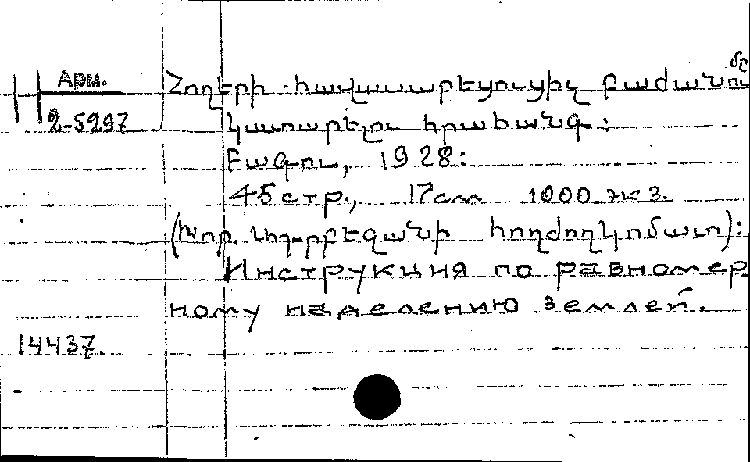 Арм.
2-5297
Հողերի հավասարեցուցիչ բաժանումը
կատարելու հրահանգ:
Բագու, 1928:
45 стр., 17 см 1000 экз.
(Խոր. Ադրբեջանի հողժողկոմատ):
Инструкция по равномер
ному наделению землей.
14437.